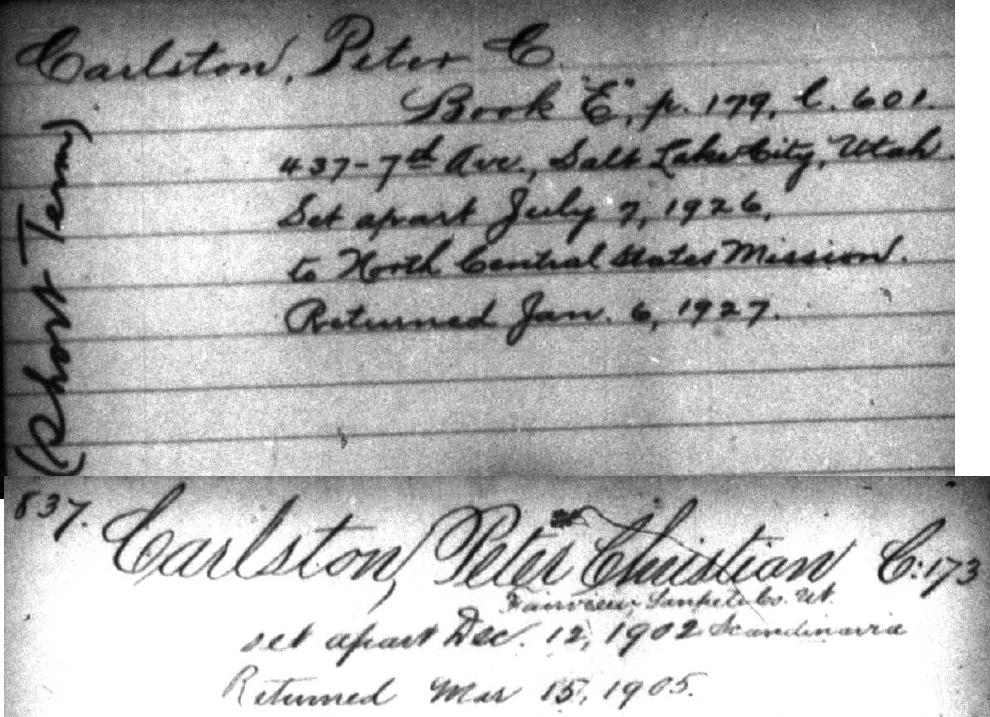 Carlston, Peter C.
Book "E", p. 179, l. 601.
437-7th Ave., Salt Lake City, Utah.
Set apart July 7, 1926,
to North Central States Mission.
Returned Jan. 6, 1927.
(Short Term)
837. Carlston, Peter Christian C:173
Fairview Sanpete Co. Ut.
set apart Dec. 12, 1902 Scandinavia
Returned Mar 15, 1905.